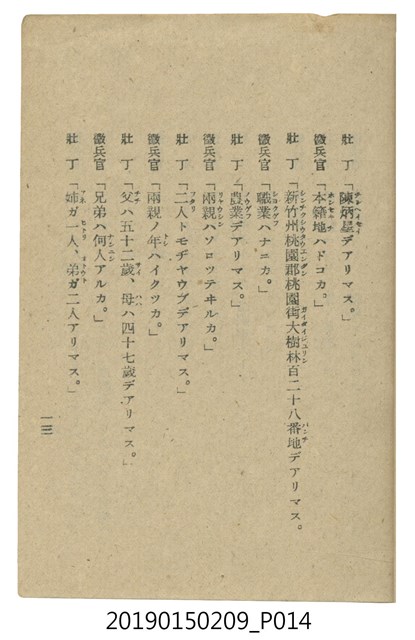 壯丁「陳炳星デアリマス。」
徵兵官「本籍地ハドコカ。」
壯丁「新竹州桃園郡桃園街大樹林百二十八番地デアリマス。
徵兵官「職業ハナニカ。」
壯丁「農業デアリマス。」
徵兵官「兩親ハソロツテヰルカ。」
壯丁「二人トモヂヤウブデアリマス。」
徵兵官「兩親ノ年ハイクツカ。」
壯丁「父ハ五十二歲、母ハ四十七歲デアリマス。」
徵兵官「兄弟ハ何人アルカ。」
壯丁「姉ガ一人、弟ガ二人アリマス。」
一三
20190150209_P014